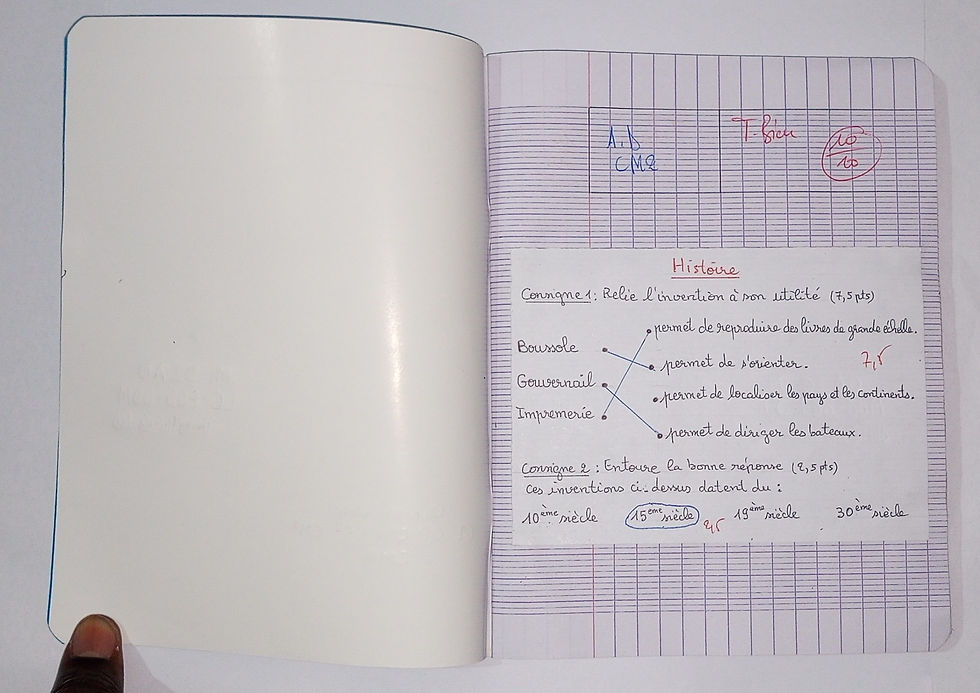 A.D
CM2
T. Bien
10
10
Histoire
Consigne 1 : Relie l'invention à son utilité (7,5 pts)
permet de reproduire des livres de grande échelle.
Boussole
permet de s'orienter.
7,5
Gouvernail
permet de localiser les pays et les continents.
Impremerie
permet de diriger les bateaux.
Consigne 2 : Entoure la bonne réponse (2,5 pts)
Ces inventions ci-dessus datent du :
10ème siècle 15ème siècle 19ème siècle 30ème siècle
2,5